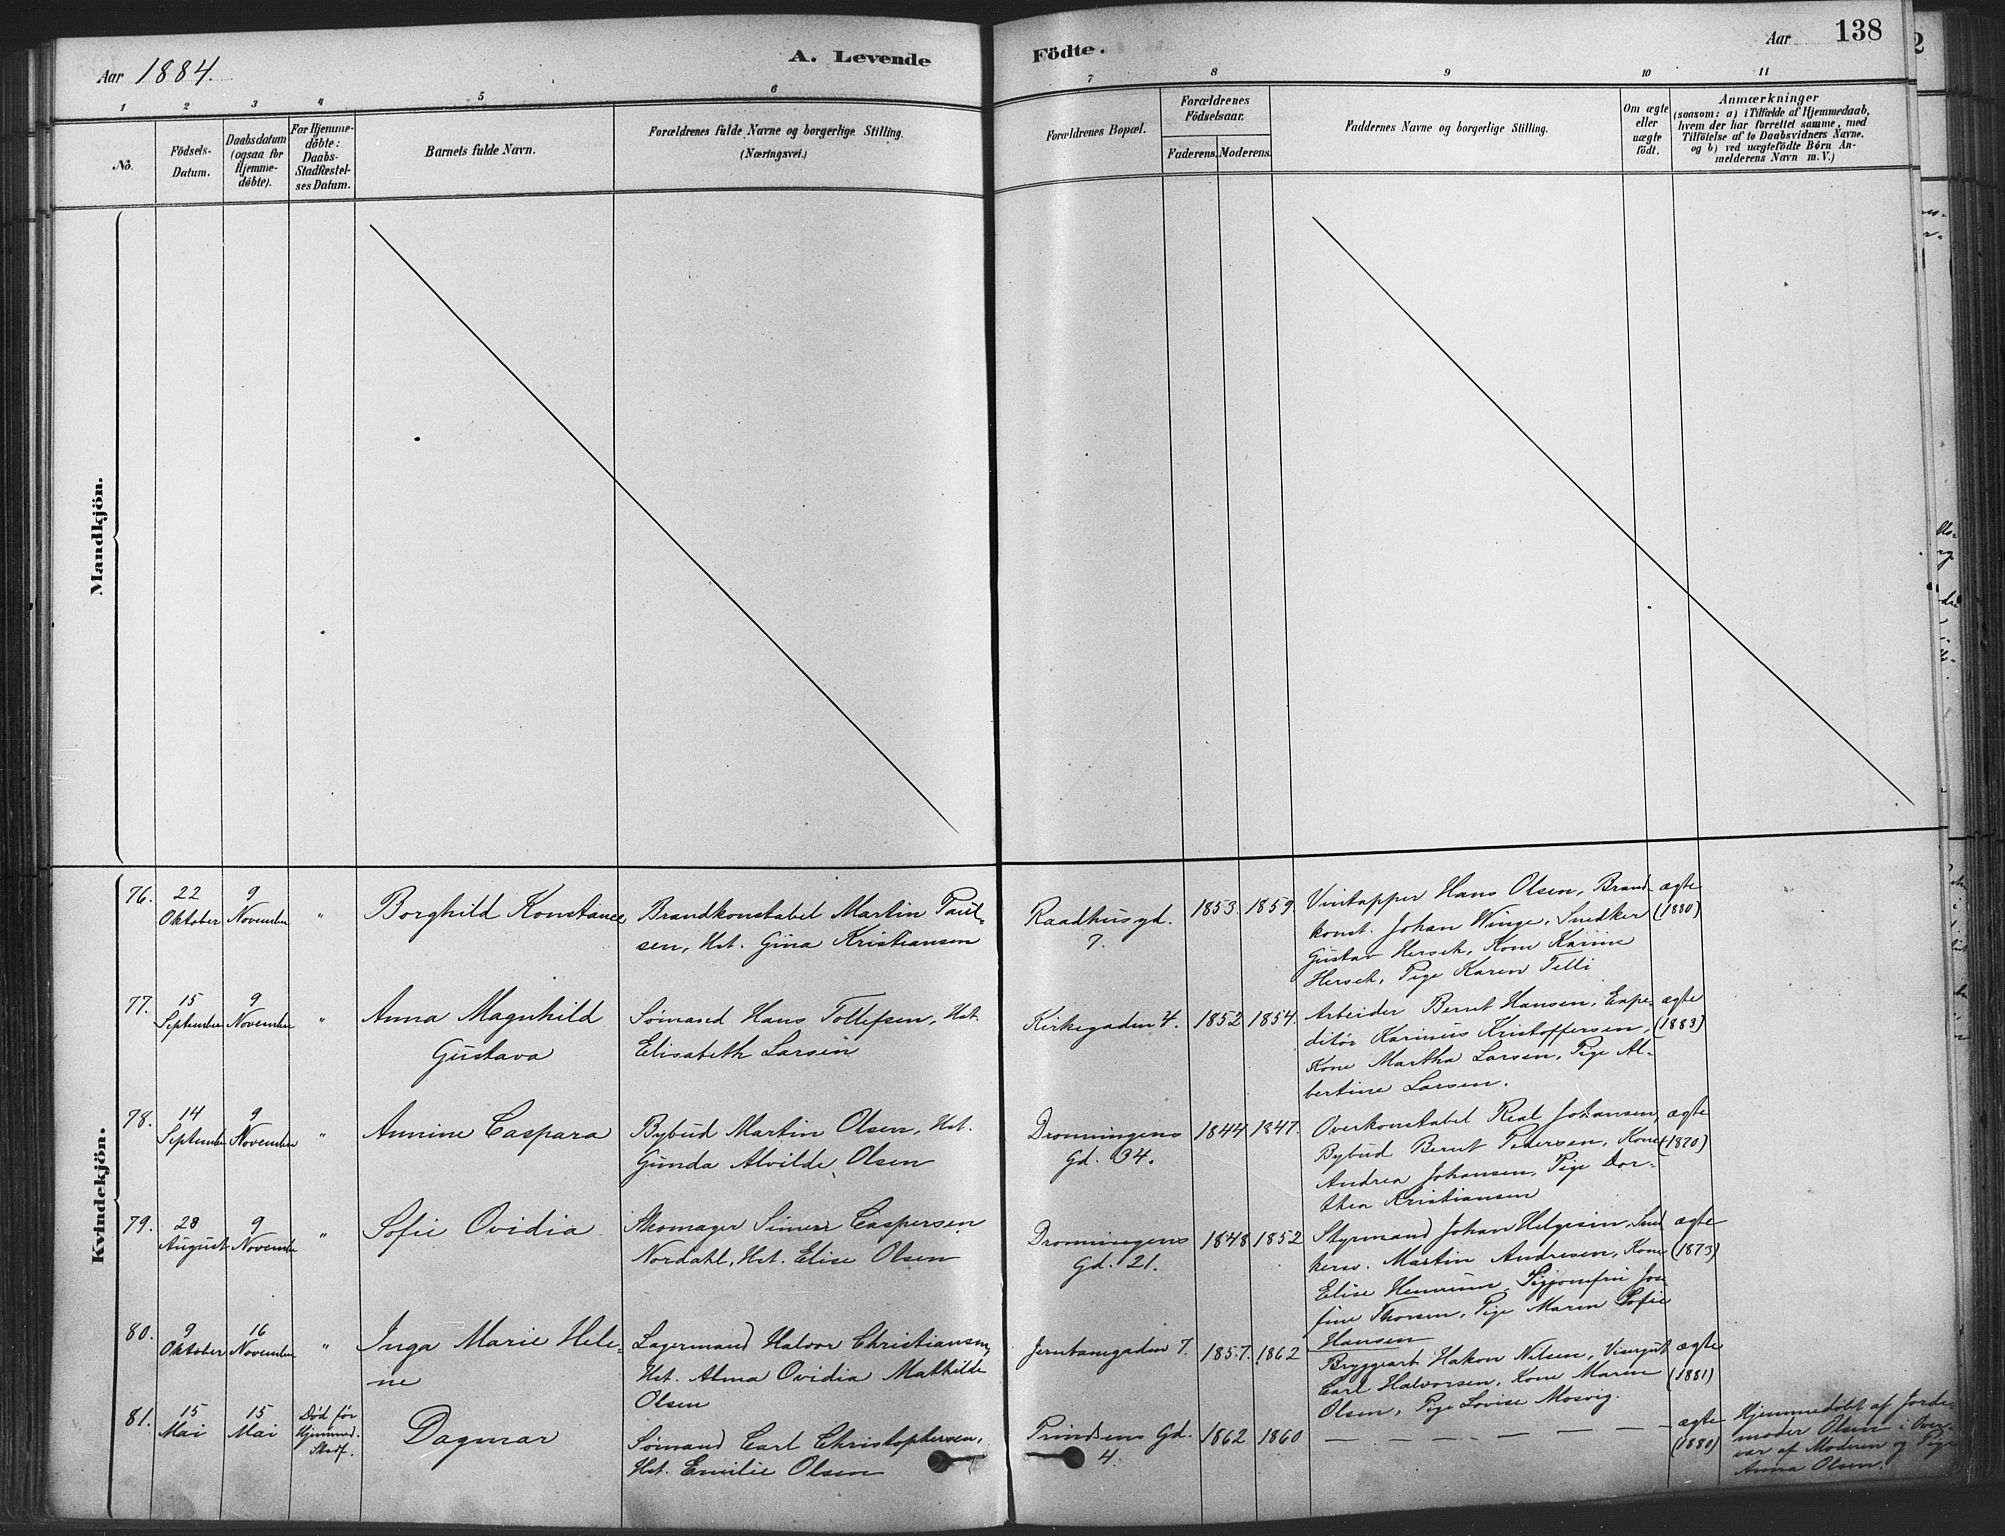 Aar 1884.
A. Levende
Födte.
Aar
138
1 2 3 4 5 6 7 8 9 10 11
No.
Födsels-
Datum.
Daabsdatum
(ogsaa for
Hjemme-
døbte).
For Hjemme-
døbte:
Daabs-
Stadfæstel-
ses Datum.
Barnets fulde Navn.
Forældrenes fulde Navne og borgerlige Stilling.
(Næringsvei.)
Forældrenes Bopæl.
Forældrenes
Födselsaar.
Faderens. Moderens.
Faddernes Navne og borgerlige Stilling.
Om ægte
eller
uægte
födt.
Anmærkninger
(saasom: a) i Tilfælde af Hjemmedaab,
hvem der har forrettet samme, med
Tilföielse af to Daabsvidners Navne.
og b) ved uægtefödte Börn An-
melderens Navn m. V.)
Mandkjön.
Kvindekjön.
76.
22
Oktober
9
November
"
Borghild Konstance
Brandkonstabel Martin Paul-
sen, Hst. Gina Kristiansen
Raadhusgd.
7.
1853. 1859.
Vintapper Hans Olsen, Brand-
konst. Johan Winge, Snedker
Gustav Hersch, Kone Karine
Hersch, Pige Karen Telli
ægte
(1880)
77.
15
September
9
November
"
Anna Magnhild
Gustava
Sømand Hans Tollefsen, Hst.
Elisabeth Larsen
Kirkegaden 4.
1852 1854.
Arbeider Bernt Hansen, Expe-
ditör Karinius Kristoffersen,
Kone Martha Larsen, Pige Al-
bertine Larsen.
ægte
(1883)
78.
14
September
9
November
"
Annine Caspara
Bybud Martin Olsen, Hst.
Gunda Alvilde Olsen
Dronningens
Gd. 34.
1844 1847.
Overkonstabel Real Johansen,
Bybud Bernt Pedersen, Kone
Andrea Johansen, Pige Dor-
thea Kristiansen
ægte
(1870)
79.
28
August
9
November
"
Sofie Ovidia
Skomager Simen Caspersen
Nordahl, Hst. Elise Olsen
Dronningens
Gd. 21.
1848 1852
Styrmand Johan Helgesen, Sned
kersv. Martin Andresen, Kone
Elise Jo-
fine Thorsen, Pige Maren Sofie
Hansen
ægte
(1873)
80.
9
Oktober
16
November
"
Inga Marie Hele-
ne
Lagermand Halvor Christiansen,
Hst. Alma Ovidia Mathilde
Olsen
Jernbanegaden 7.
1857. 1862
Bryggearb. Hakon Nilsen, Visergut
Carl Halvorsen, Kone Maren
Olsen, Pige Lovise Mosvig.
ægte
(1881)
81.
15
Mai
15
Mai
Død før
Hjemmed.
Stadf.
Dagmar
Sømand Carl Christophersen,
Hst. Emilie Olsen
Prindsens Gd.
4.
1862 1860
— — — — — —
ægte
(1880)
Hjemmedøbt af Jorde-
moder Olsen i Over-
vær af Moderen og Pige
Anna Olsen.